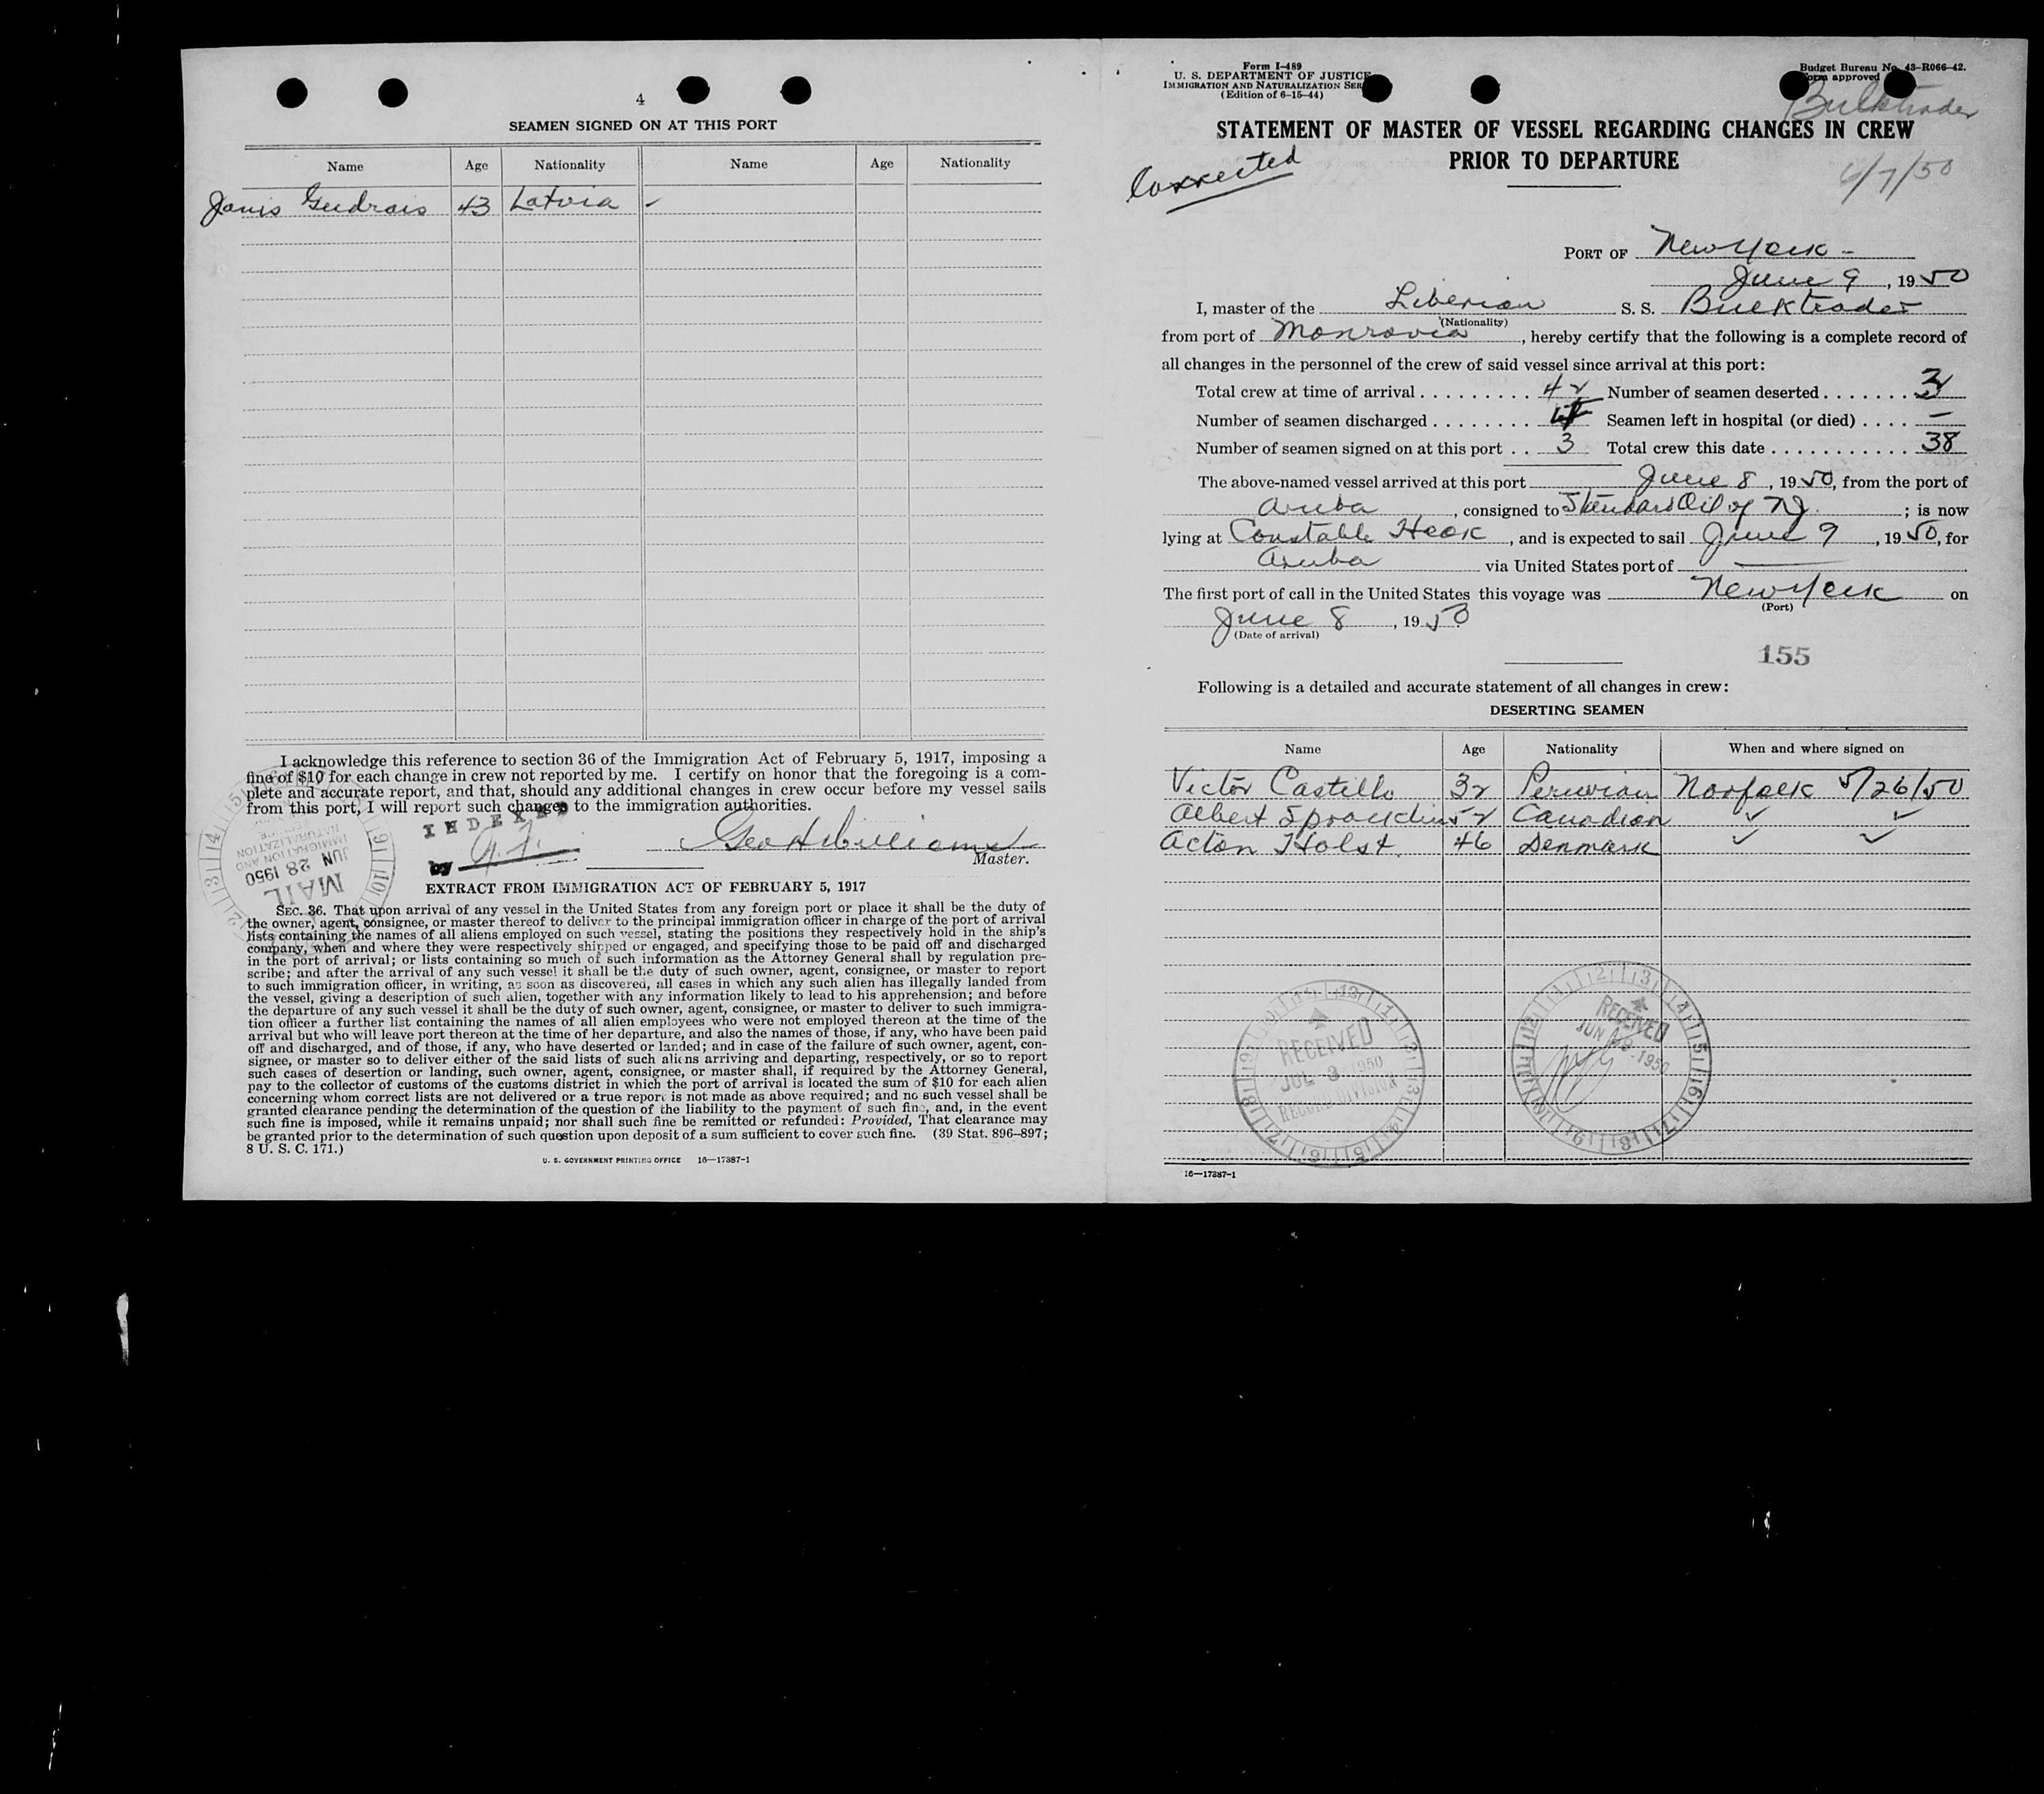 4
SEAMEN SIGNED ON AT THIS PORT
Name Age Nationality Name Age Nationality
Janis Gudrais 43 Latvia -
I acknowledge this reference to section 36 of the Immigration Act of February 5, 1917, imposing a
fine of $10 for each change in crew not reported by me. I certify on honor that the foregoing is a com-
plete and accurate report, and that, should any additional changes in crew occur before my vessel sails
from this port, I will report such changes to the immigration authorities.
INDEXED
by
Geo H Williams
Master.
MAIL
JUN 28 1950
IMMIGRATION AND
NATURALIZATION
EXTRACT FROM IMMIGRATION ACT OF FEBRUARY 5, 1917
SEC. 36. That upon arrival of any vessel in the United States from any foreign port or place it shall be the duty of
the owner, agent, consignee, or master thereof to deliver to the principal immigration officer in charge of the port of arrival
lists containing the names of all aliens employed on such vessel, stating the positions they respectively hold in the ship's
company, when and where they were respectively shipped or engaged, and specifying those to be paid off and discharged
in the port of arrival; or lists containing so much of such information as the Attorney General shall by regulation pre-
scribe; and after the arrival of any such vessel it shall be the duty of such owner, agent, consignee, or master to report
to such immigration officer, in writing, as soon as discovered, all cases in which any such alien has illegally landed from
the vessel, giving a description of such alien, together with any information likely to lead to his apprehension; and before
the departure of any such vessel it shall be the duty of such owner, agent, consignee, or master to deliver to such immigra-
tion officer a further list containing the names of all alien employees who were not employed thereon at the time of the
arrival but who will leave port thereon at the time of her departure, and also the names of those, if any, who have been paid
off and discharged, and of those, if any, who have deserted or landed; and in case of the failure of such owner, agent, con-
signee, or master so to deliver either of the said lists of such aliens arriving and departing, respectively, or so to report
such cases of desertion or landing, such owner, agent, consignee, or master shall, if required by the Attorney General,
pay to the collector of customs of the customs district in which the port of arrival is located the sum of $10 for each alien
concerning whom correct lists are not delivered or a true report is not made as above required; and no such vessel shall be
granted clearance pending the determination of the question of the liability to the payment of such fine, and, in the event
such fine is imposed, while it remains unpaid; nor shall such fine be remitted or refunded: Provided, That clearance may
be granted prior to the determination of such question upon deposit of a sum sufficient to cover such fine. (39 Stat. 896-897;
8 U. S. C. 171.)
U. S. GOVERNMENT PRINTING OFFICE 16—17387-1
Form I-489
U. S. DEPARTMENT OF JUSTICE
IMMIGRATION AND NATURALIZATION SER
(Edition of 6-15-44)
Budget Bureau No. 43-R066-42.
Form approved
Bulktrader
STATEMENT OF MASTER OF VESSEL REGARDING CHANGES IN CREW
PRIOR TO DEPARTURE
Corrected
6/7/50
PORT OF New York -
June 9, 1950
I, master of the Liberian S. S. Bulktrader
(Nationality)
from port of Monrovia, hereby certify that the following is a complete record of
all changes in the personnel of the crew of said vessel since arrival at this port:
Total crew at time of arrival . . . . . . . . . 42 Number of seamen deserted . . . . . . . 3
Number of seamen discharged . . . . . . . . Seamen left in hospital (or died) . . . . —
Number of seamen signed on at this port . . 3 Total crew this date . . . . . . . . . . . 38
The above-named vessel arrived at this port June 8, 1950, from the port of
Aruba, consigned to Standard Oil of NJ. ; is now
lying at Constable Hook, and is expected to sail June 9, 1950, for
Aruba via United States port of —
The first port of call in the United States this voyage was New York on
(Port)
June 8, 1950
(Date of arrival)
155
Following is a detailed and accurate statement of all changes in crew:
DESERTING SEAMEN
Name Age Nationality When and where signed on
Victor Castillo 32 Peruvian Norfolk 5/26/50
Albert Spracklin 52 Canadian ✓ ✓
Acton Holst. 46 Denmark ✓ ✓
RECEIVED
JUL 3 1950
RECORD DIVISION
RECEIVED
JUN 1950
16—17387-1